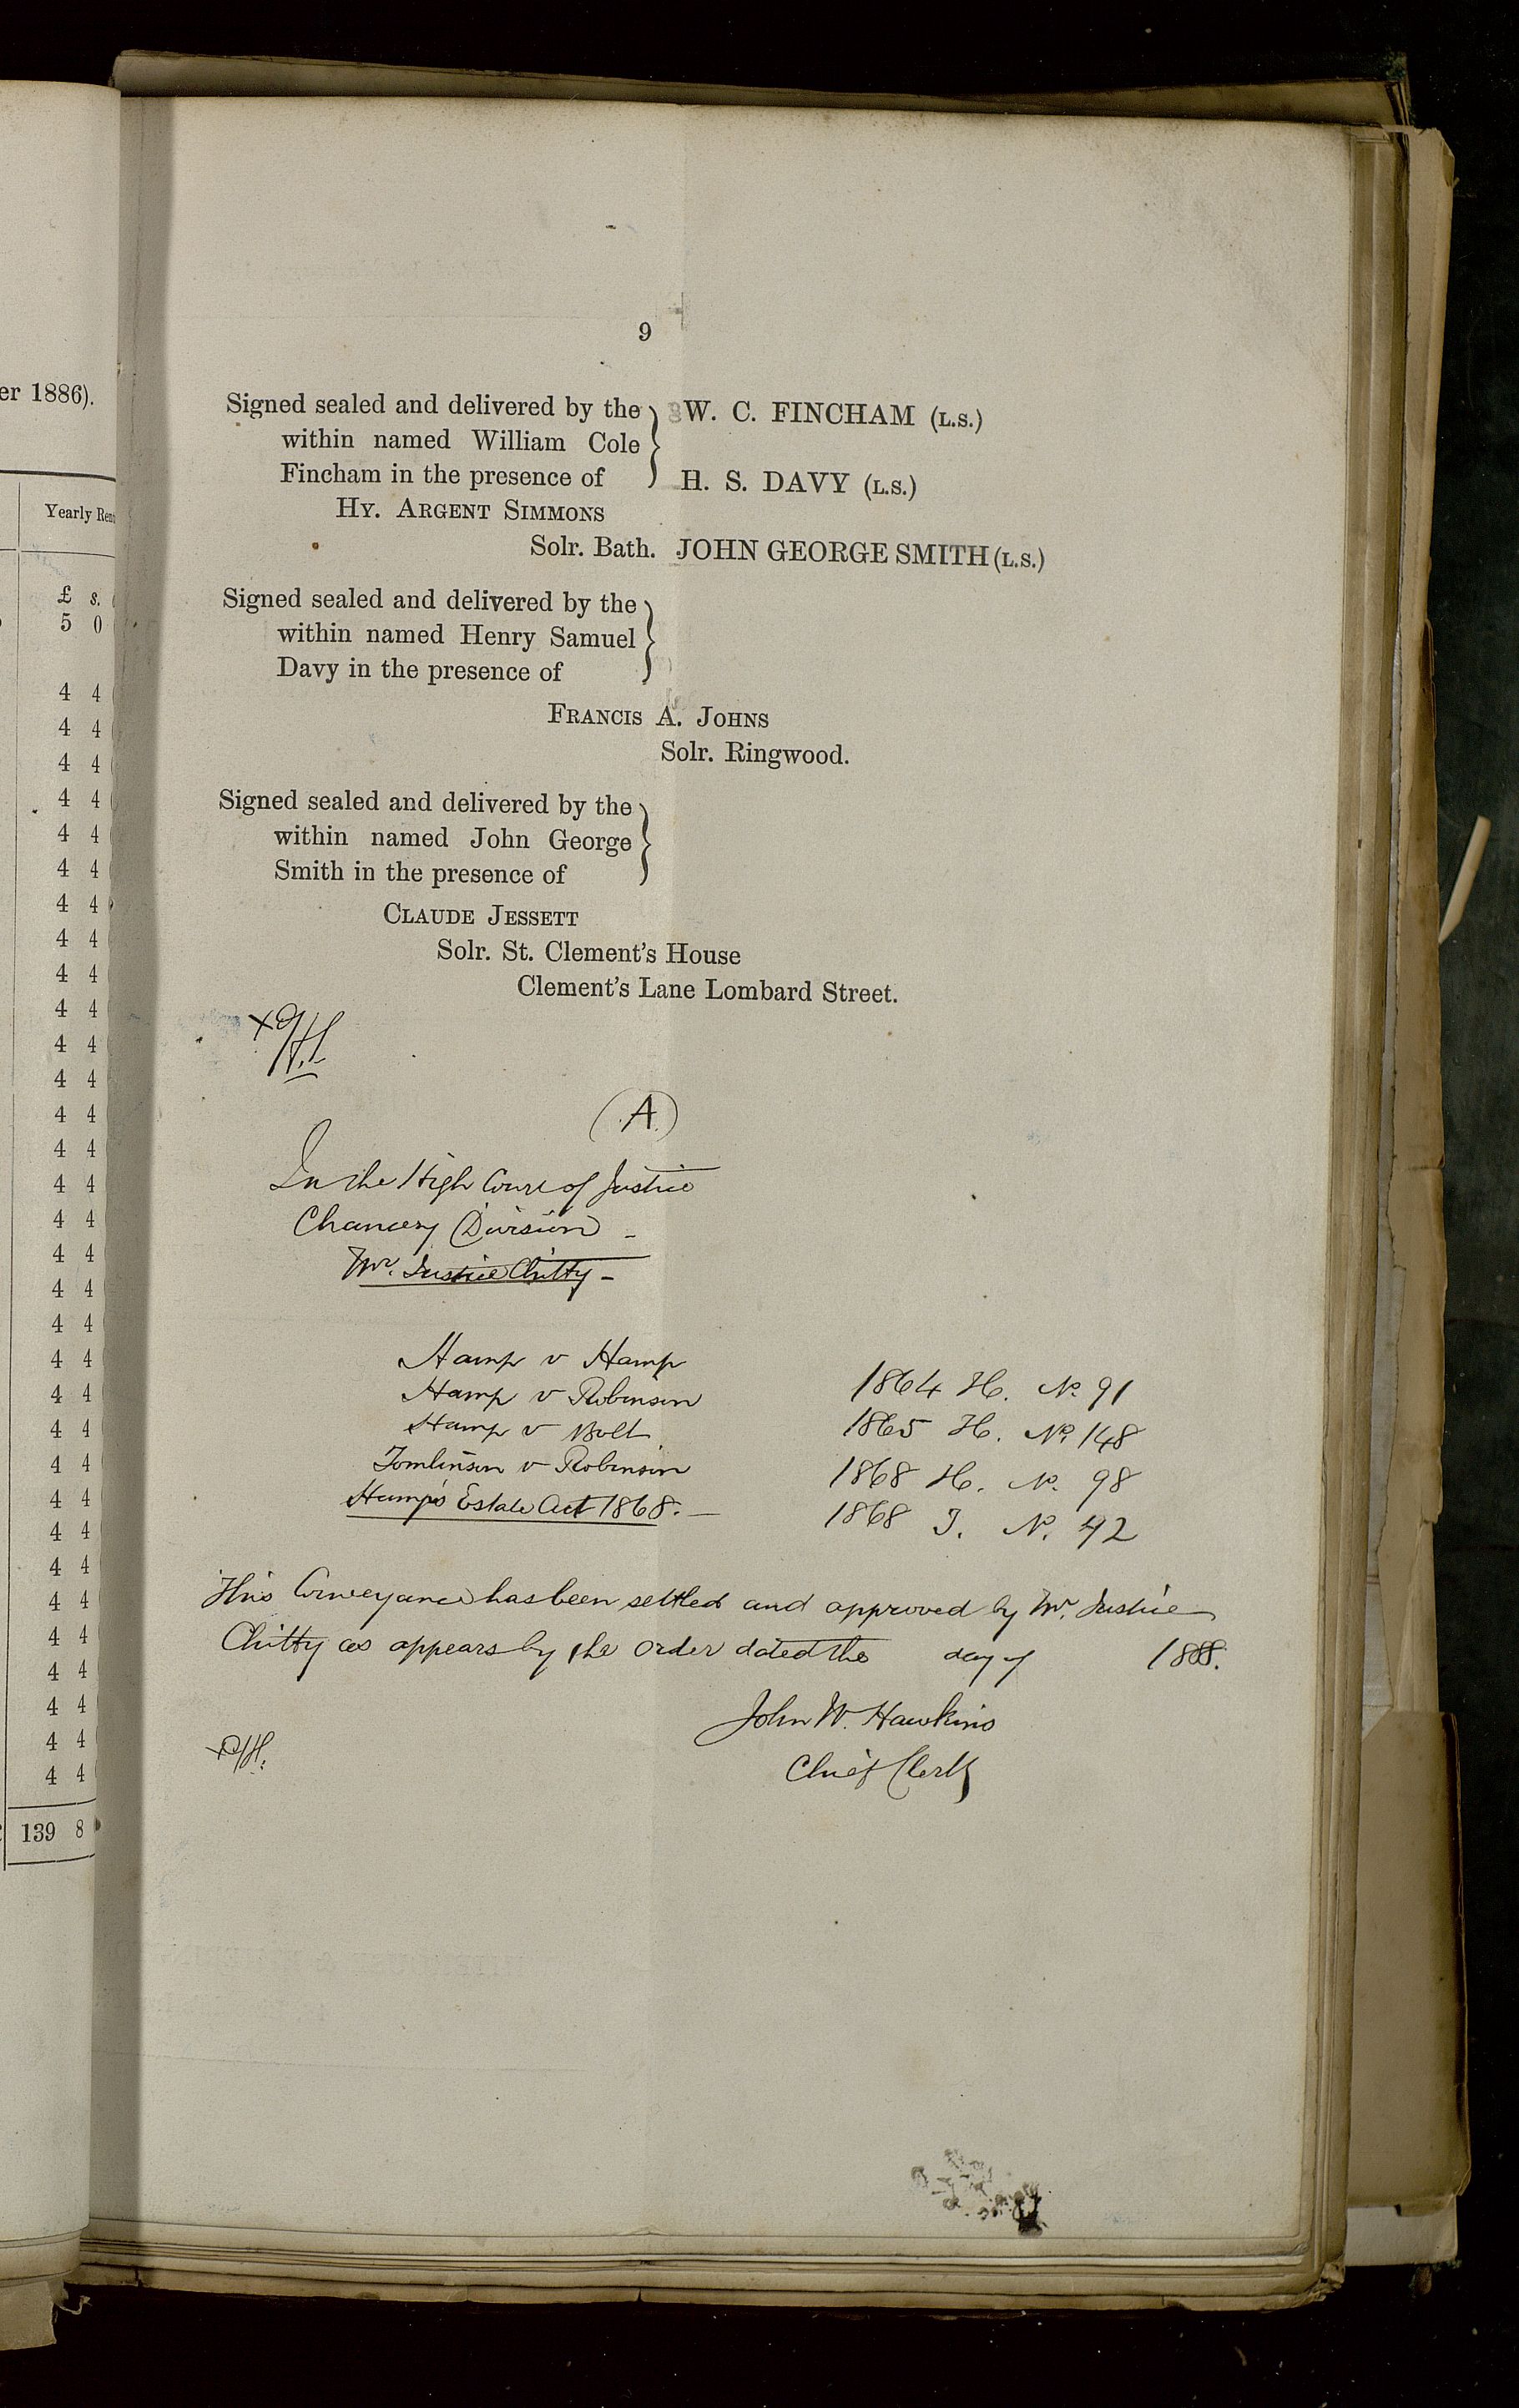 er 1886).
Yearly Ren
£ s.
5 0
4 4
4 4
4 4
4 4
4 4
4 4
4 4
4 4
4 4
4 4
4 4
4 4
4 4
4 4
4 4
4 4
4 4
4 4
4 4
4 4
4 4
4 4
4 4
4 4
4 4
4 4
4 4
4 4
4 4
4 4
4 4
4 4
139 8
9
Signed sealed and delivered by the W. C. FINCHAM (L.S.)
within named William Cole
Fincham in the presence of H. S. DAVY (L.S.)
HY. ARGENT SIMMONS
Solr. Bath. JOHN GEORGE SMITH (L.S.)
Signed sealed and delivered by the
within named Henry Samuel
Davy in the presence of
FRANCIS A. JOHNS
Solr. Ringwood.
Signed sealed and delivered by the
within named John George
Smith in the presence of
CLAUDE JESSETT
Solr. St. Clement's House
Clement's Lane Lombard Street.
(A)
In the High Court of Justice
Chancery Division -
Mr. Justice Chitty -
Hamp v Hamp 1864 H. No. 91
Hamp v Robinson 1865 H. No. 148
Hamp v Bolt 1868 H. No. 98
Tomlinson v Robinson 1868 T. No. 42
Hamp's Estate Act 1868. -
This Conveyance has been settled and approved by Mr. Justice
Chitty as appears by the Order dated the day of 1888.
John W. Hawkins
Chief Clerk